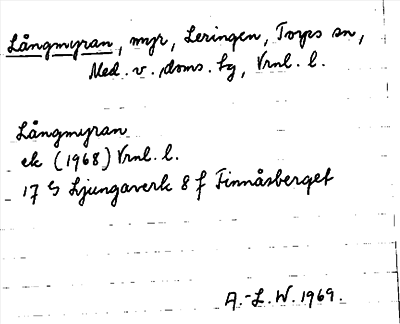 Långmyran, myr, Leringen, Torps sn,
Med. v. doms. tg, Vrnl. l.
Långmyran
ek (1968) Vrnl. l.
17 G Ljungaverk 8 f Finnåsberget
A.-L. W. 1969.